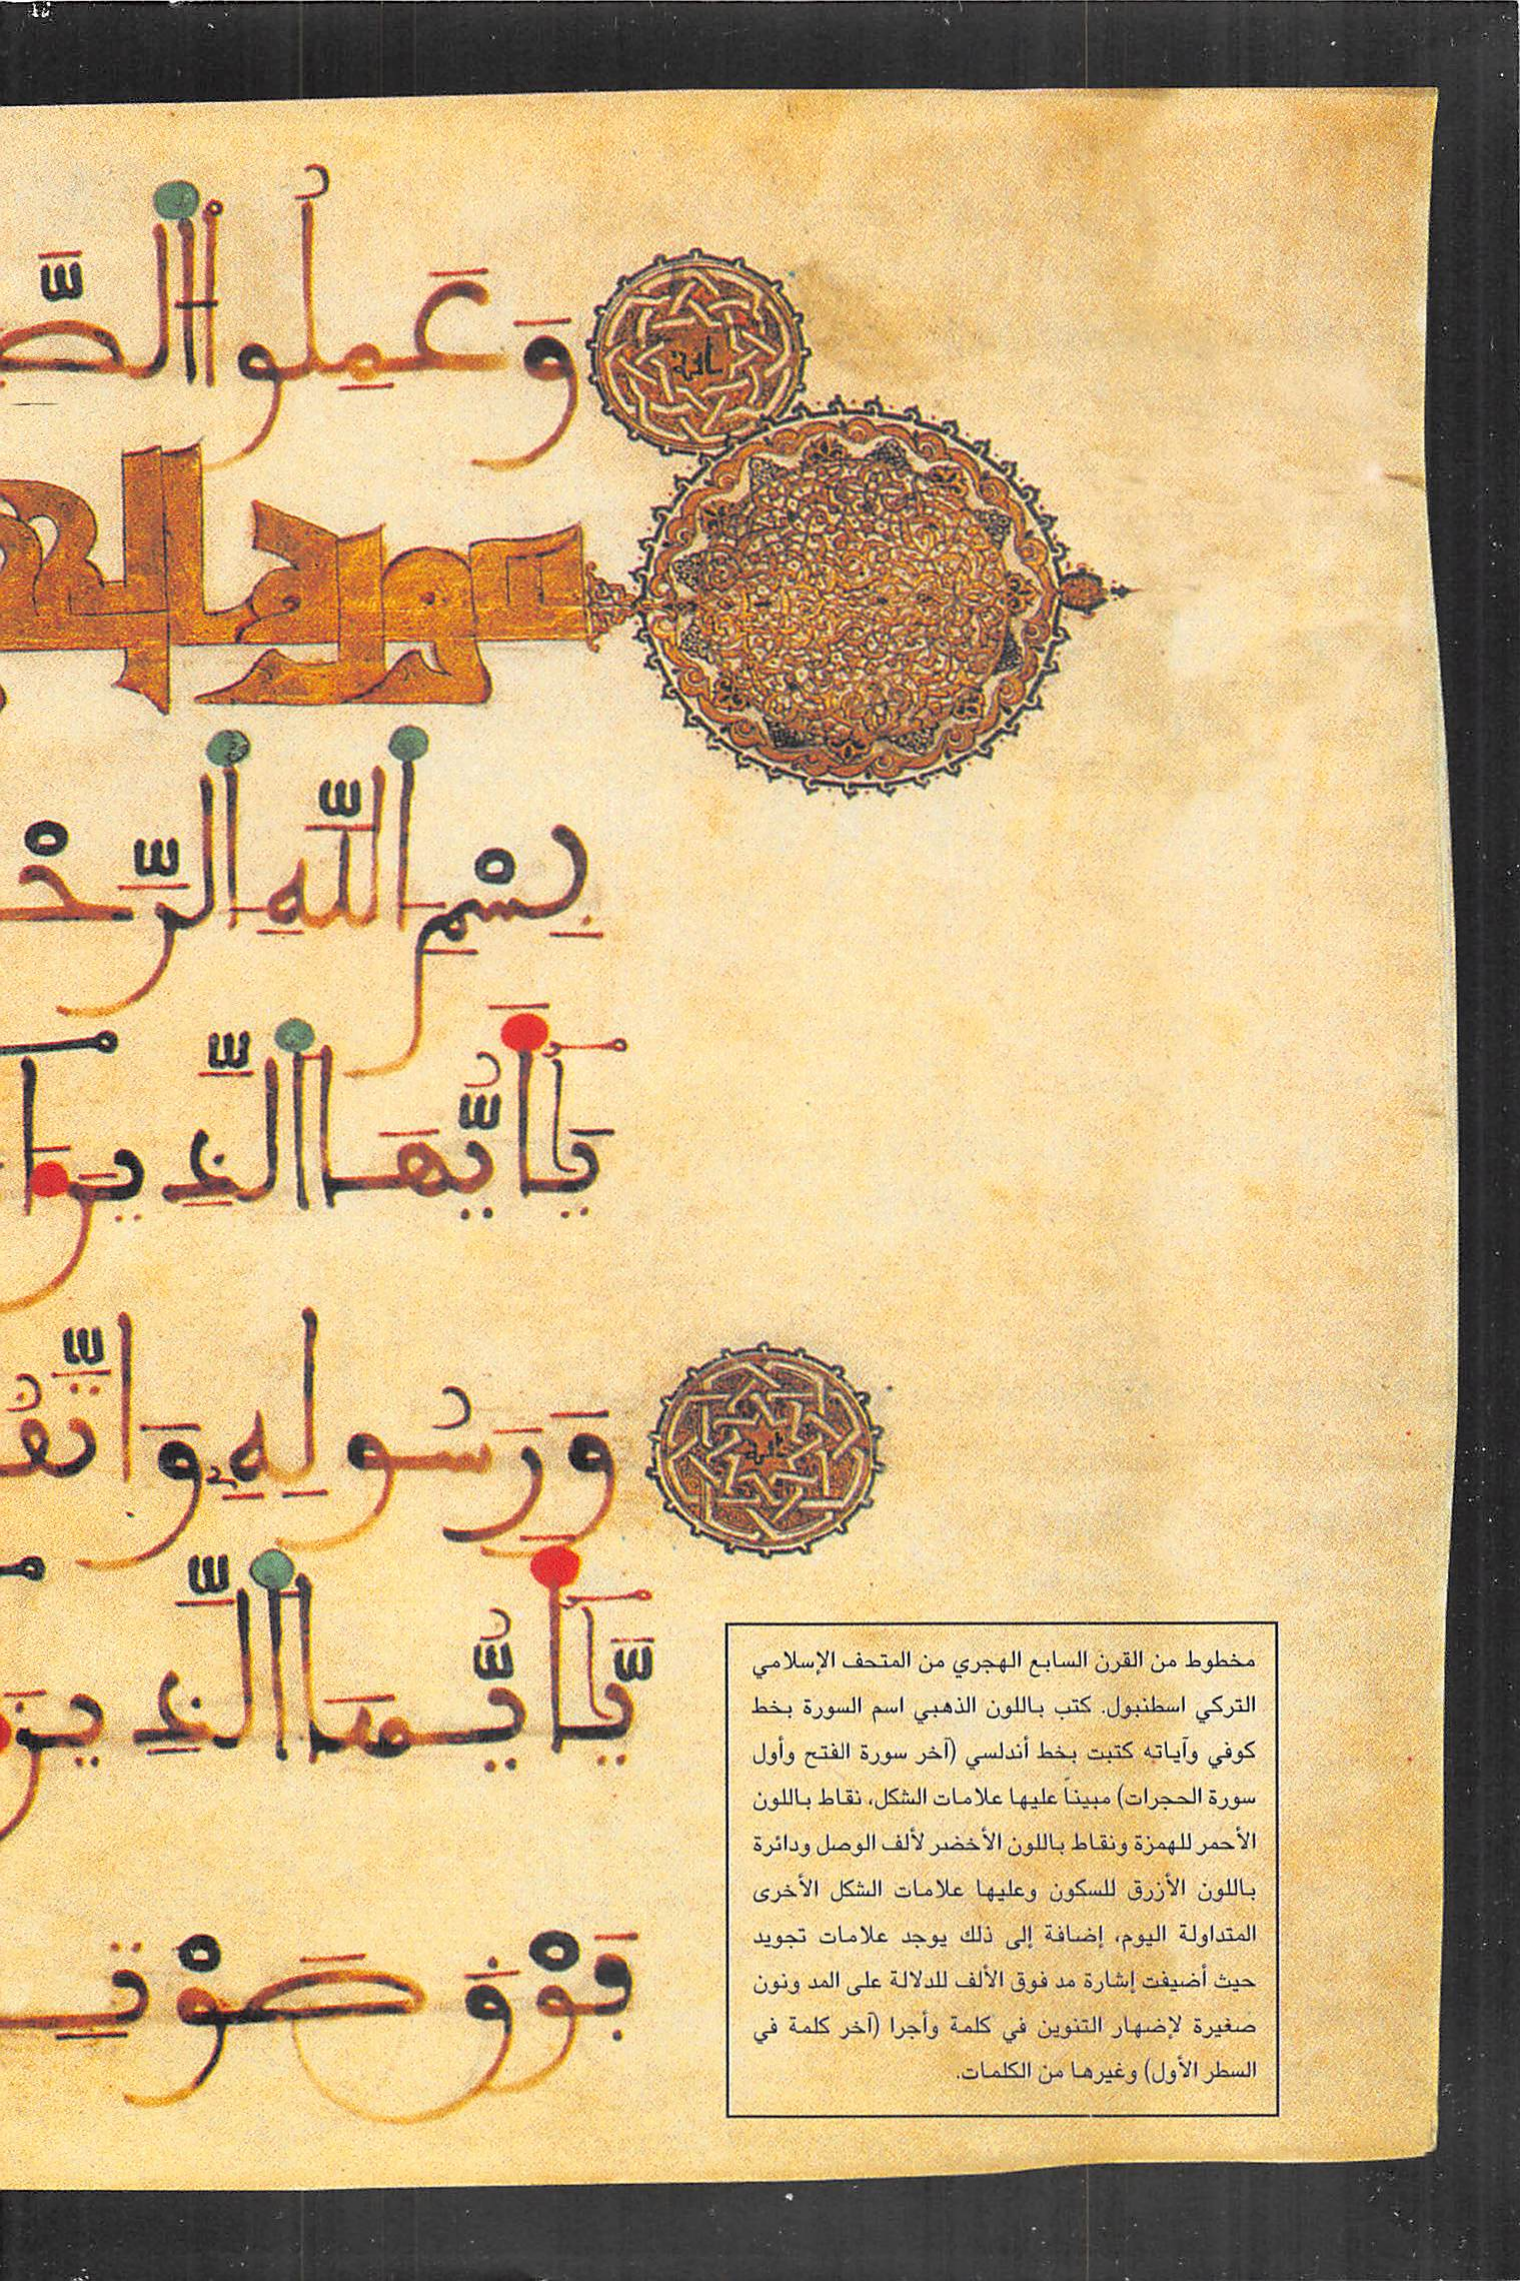 وَعَمِلُوا الصَّ
سورة الح
بِسْمِ اللَّهِ الرَّحْ
يَا أَيُّهَا الَّذِينَ
وَرَسُولِهِ وَاتَّقُ
يَا أَيُّهَا الَّذِينَ
فَوْقَ صَوْتِ
مخطوط من القرن السابع الهجري من المتحف الإسلامي
التركي اسطنبول. كتب باللون الذهبي اسم السورة بخط
كوفي وآياته كتبت بخط أندلسي (آخر سورة الفتح وأول
سورة الحجرات) مبيناً عليها علامات الشكل، نقاط باللون
الأحمر للهمزة ونقاط باللون الأخضر لألف الوصل ودائرة
باللون الأزرق للسكون وعليها علامات الشكل الأخرى
المتداولة اليوم، إضافة إلى ذلك يوجد علامات تجويد
حيث أضيفت إشارة مد فوق الألف للدلالة على المد ونون
صغيرة لإضهار التنوين في كلمة وأجرا (آخر كلمة في
السطر الأول) وغيرها من الكلمات.